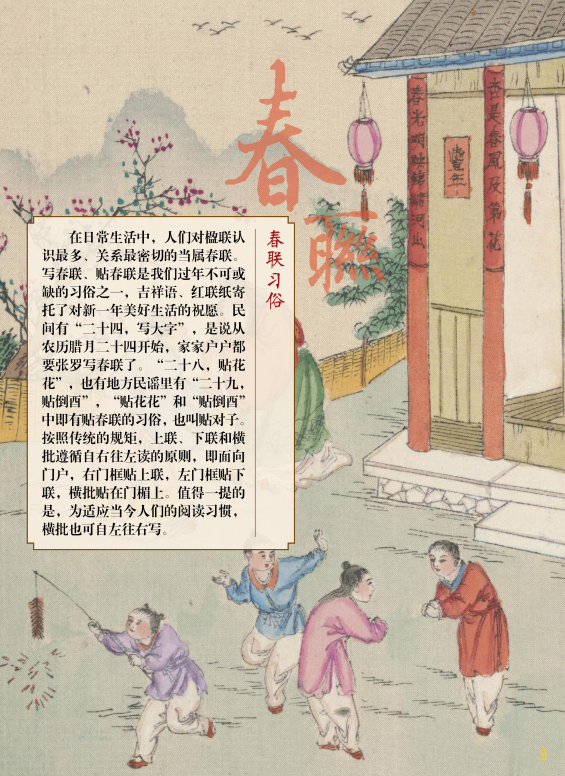 春聯
春联习俗
在日常生活中，人们对楹联认
识最多、关系最密切的当属春联。
写春联、贴春联是我们过年不可或
缺的习俗之一，吉祥语、红联纸寄
托了对新一年美好生活的祝愿。民
间有“二十四，写大字”，是说从
农历腊月二十四开始，家家户户都
要张罗写春联了。“二十八，贴花
花”，也有地方民谣里有“二十九，
贴倒酉”，“贴花花”和“贴倒酉”
中即有贴春联的习俗，也叫贴对子。
按照传统的规矩，上联、下联和横
批遵循自右往左读的原则，即面向
门户，右门框贴上联，左门框贴下
联，横批贴在门楣上。值得一提的
是，为适应当今人们的阅读习惯，
横批也可自左往右写。
杏是春風及第花
豐年
春光明
河山
3